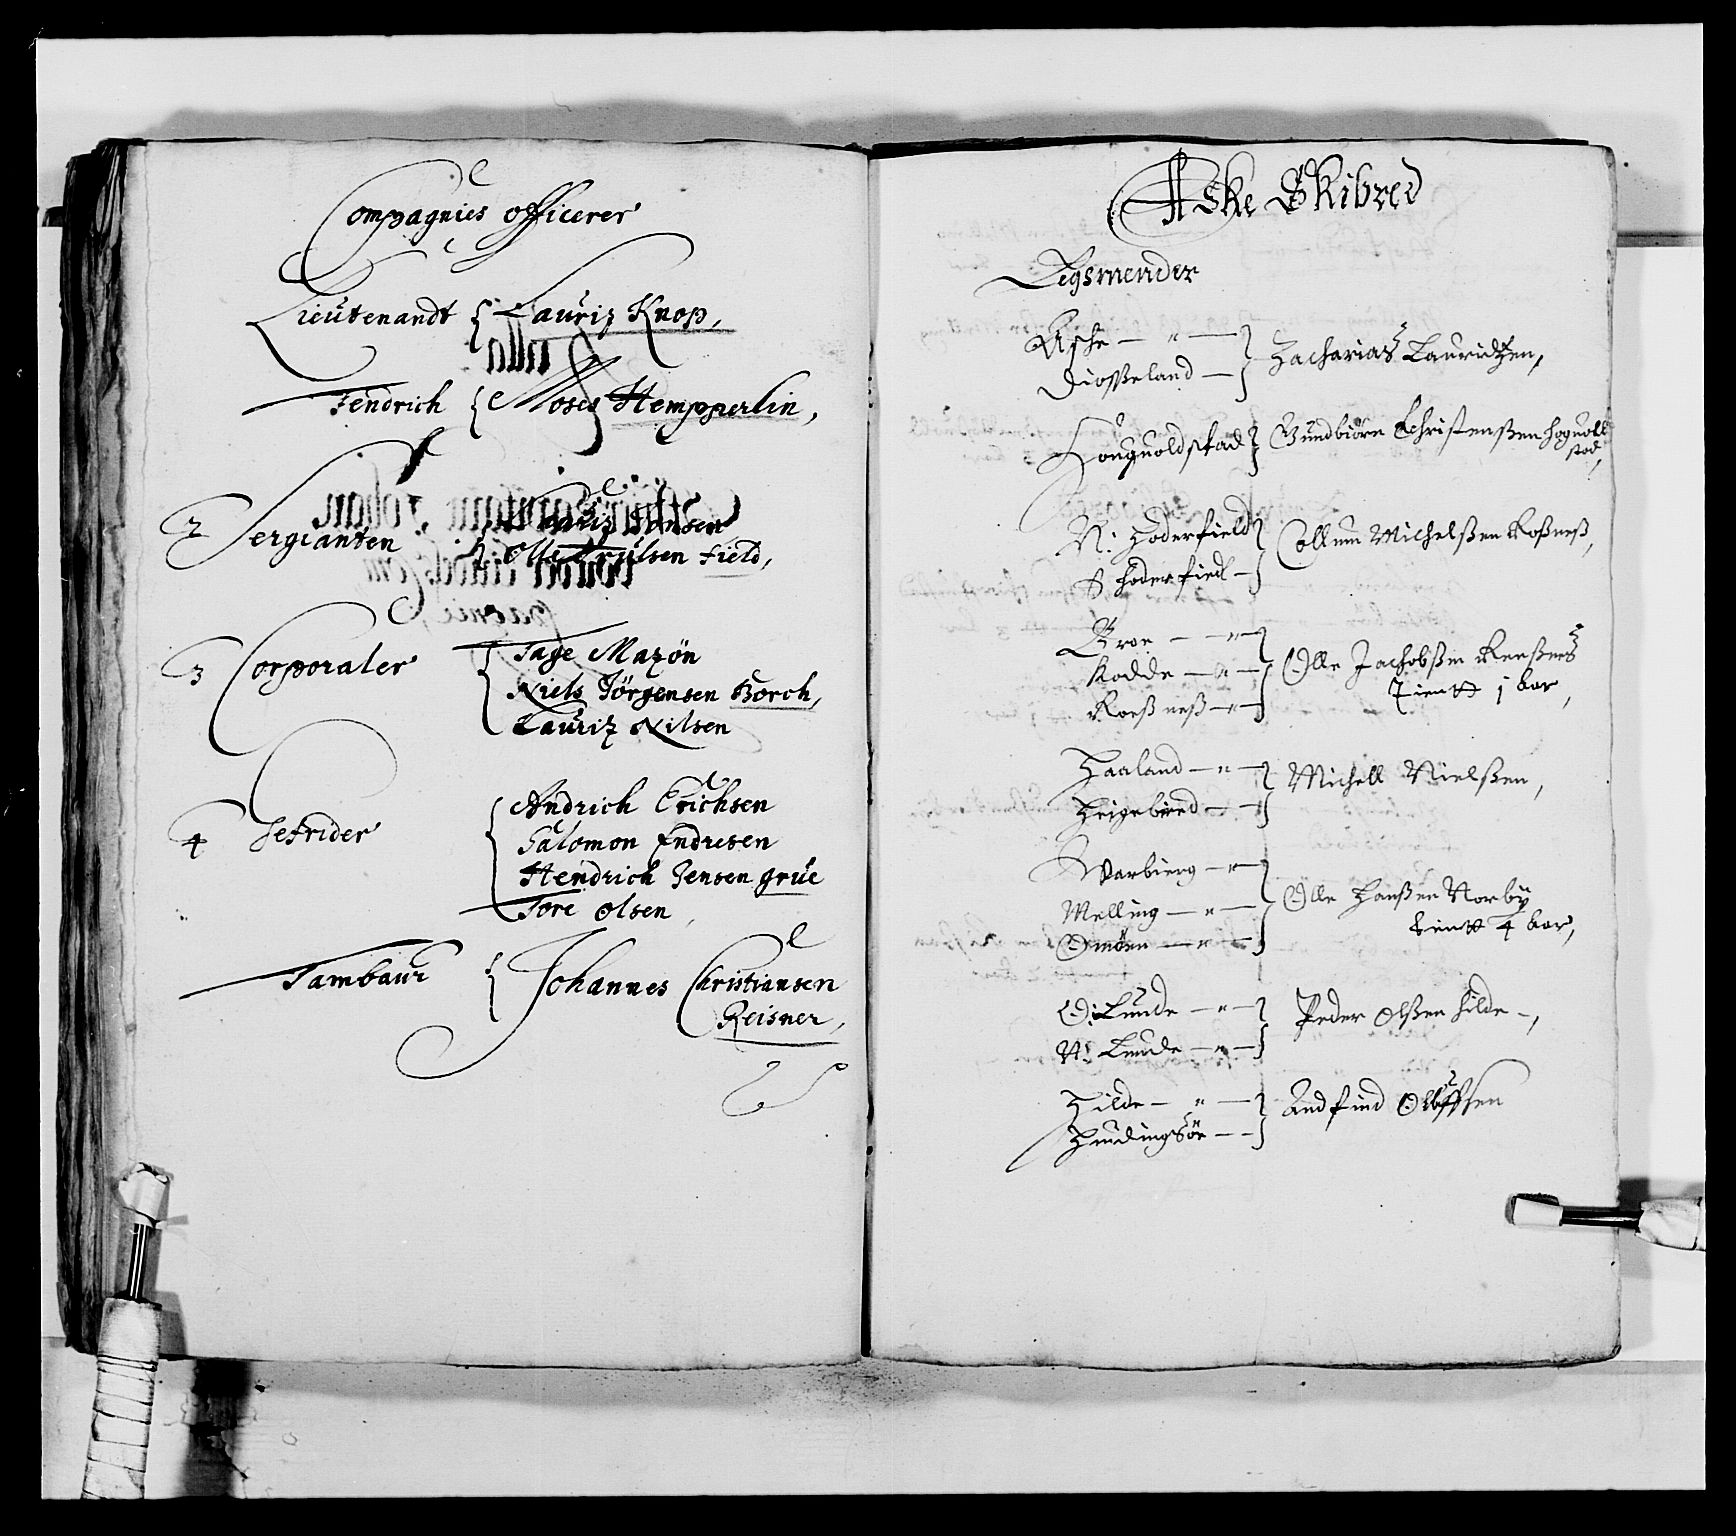 Compagnies officerer
Lieutenandt { Lauriz Knop,
Fendrich { Moses Hempperlin,
2 Sergianten { Lauriz Hansen
Olle Trulsen Field,
3 Corporaler { Tage Mazön
Niels Jörgensen Borch,
Lauriz Nilsen
4 Gefrider { Andrich Erichsen
Salomon Endresen
Hendrich Jensen grue
Tore Olsen,
Tambaur { Johannes Christiansen
Reisner,
Aske Skibred
Legsmender
Asche — " —
Diosseland — } Zacharias Lauridtzen,
Houguoldstad } Gundbiörn Christenßen Hoguold
stad,
N: Hoderfield
S hoderfield — } Collum Michelßen Roßneß,
Broe — " —
Rodde — " —
Roeßneß — " — } Olle Jachobßen Renßnes
Tientt 1 aar,
Haaland — " —
Heigebierd — — } Michell Nielßen,
Warbierg — " —
Melling — " —
Omöen — " — } Olle Hanßen Norby
tientt 4 aar,
O: Lunde — " —
N: Lunde — " — } Peder Olßen Hilde —,
Hilde — " —
Hundingsör — — } Andfind Oluffsen